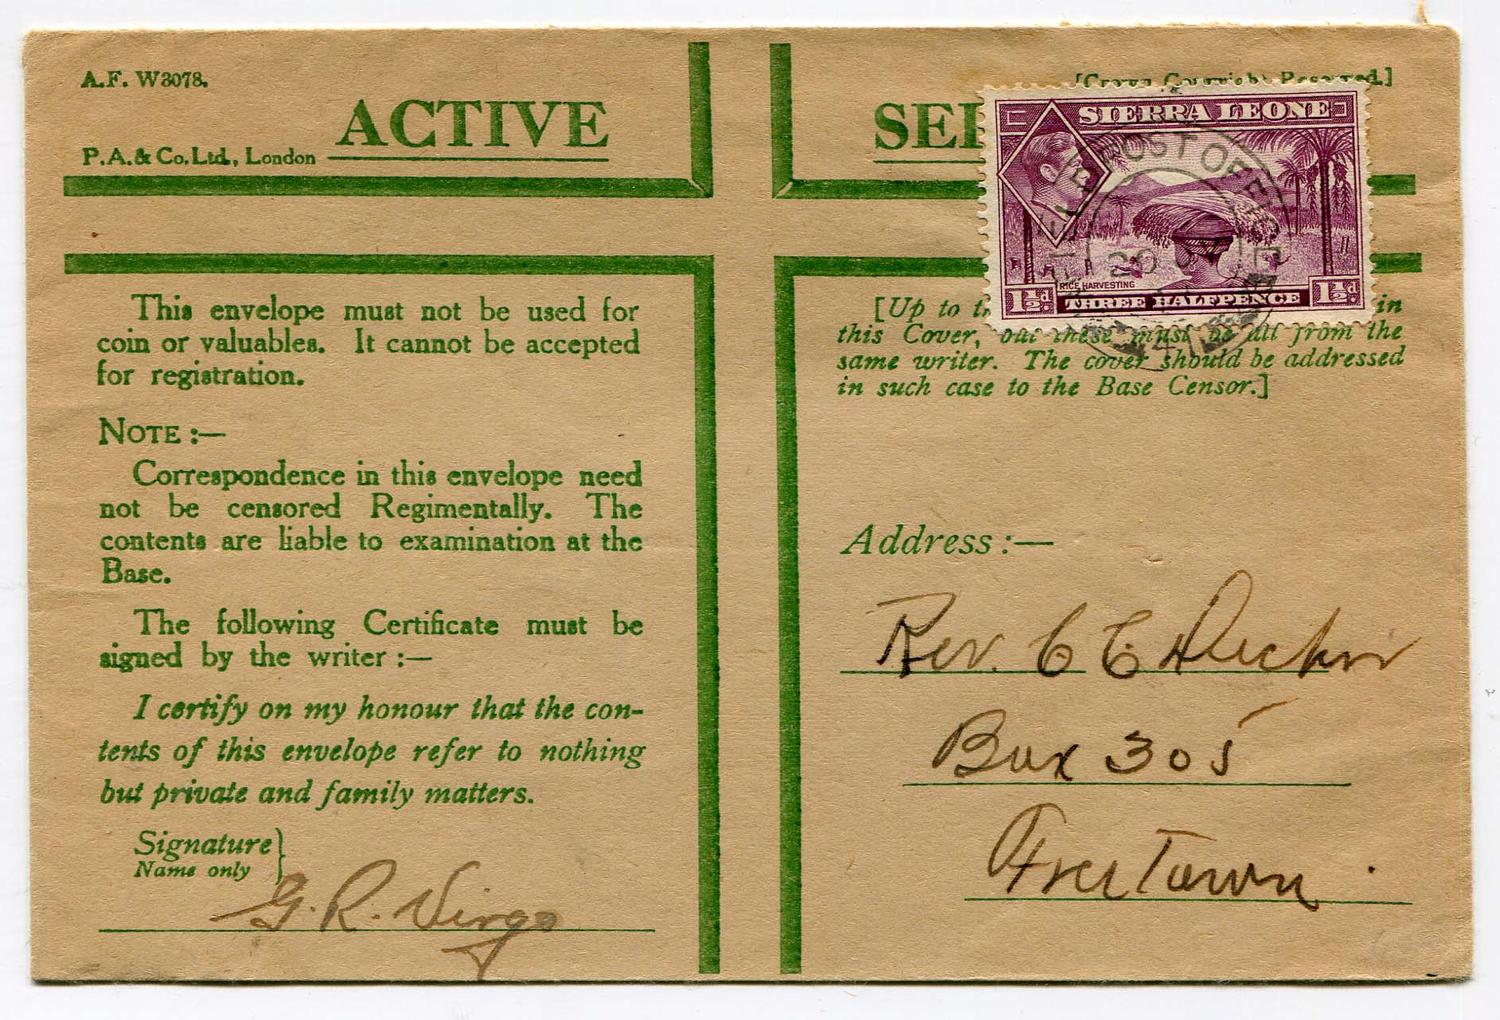 A.F. W3078.
[Crown Copyright Reserved.]
ACTIVE
P.A. & Co. Ltd., London
SIERRA LEONE
POST OFFICE
26
RICE HARVESTING
1½d THREE HALFPENCE 1½d
41
This envelope must not be used for
coin or valuables. It cannot be accepted
for registration.
NOTE :—
Correspondence in this envelope need
not be censored Regimentally. The
contents are liable to examination at the
Base.
The following Certificate must be
signed by the writer :—
I certify on my honour that the con-
tents of this envelope refer to nothing
but private and family matters.
Signature
Name only
G. R. Virgo
[Up to in
this Cover, but these must be all from the
same writer. The cover should be addressed
in such case to the Base Censor.]
Address :—
Rev. C C
Box 305
Freetown.